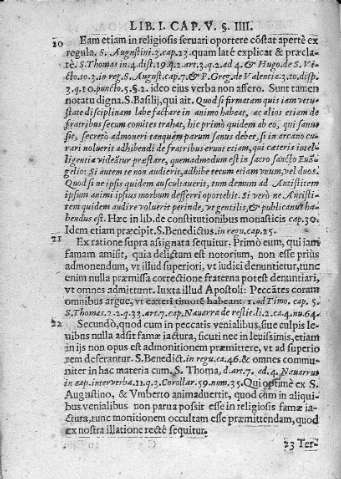 LIB. I. CAP. V. §. IIII.
20 Eam etiam in religiosis seruari oportere cõstat apertè ex
regula. S. Augustini. 3. cap. 23. quam latè explicat & præcla-
tè. S. Thomas in. 4. dist. 19. q. 2. art. 3. q. 2. ad 4. & Hugo de S. Vi-
cto. 10. 3. in reg. S. August. cap. & P. Greg. de Valentia 2. to. disp.
3. q. 10. puncto. 5. §. 2. ideo eius verba non affero. Sunt tamen
notatu digna. S. Basilij, qui ait. Quod si firmatam quis iam vetu-
state disciplinam labefactare in animo habeat, ac alios etiam è
fratribus secum comites trahat, hic primò quidem ab eo, qui sanus
sit, secretò admoneri tanquàm parum sanus debet, si in arcano cu-
rari noluerit adhibendi de fratribus erunt etiam, qui cæteris intel-
ligentia videãtur præstare, quemadmodum est in sacro sancto Euã-
gelio: Si autem te non audierit, adhibe tecum etiam vnum, vel duos.
Quod si ne ipsis quidem auscultauerit, tum demum ad Antistitem
ipsum animi ipsius morbum defferri oportebit. Si verò ne Antisti-
tem quidem audire voluerit perinde, vt gentilis, & publicanus ha-
bendus est. Hæc in lib. de constitutionibus monasticis cap. 30.
Idem etiam præcipit. S. Benedictus. in regu. cap. 25.
21 Ex ratione supra assignata sequitur. Primò eum, qui iam
famam amisit, quia delictum est notorium, non esse prius
admonendum, vt illud superiori, vt iudici denuntietur, tunc
enim nulla præmissa correctione fraterna potest denuntiari,
vt omnes admittunt. Iuxta illud Apostoli: Peccãtes coram
omnibus argue, vt cæteri timorẽ habeant. 1. ad Timo. cap. 5.
S. Thomas. 2. 2. q. 33. art. 7. cap. Nauarra de restit. li. 2. ca. 4. nu. 64.
22 Secundò, quod cum in peccatis venialibus, siue culpis le-
uibus nulla adsit famæ iactura, sicuti nec in leuissimis, etiam
in ijs non opus est admonitionem præmittere, vt ad superio
rem deferantur. S. Benedict. in regu. ca. 46. & omnes commu-
niter in hac materia cum. S. Thoma, d. art. 7. ad. 4. Nauarrus
in cap. inter verba. 11. q. 3. Corollar. 59. num. 35. Qui optimè ex S.
Augustino, & Vmberto animaduertit, quod cùm in aliqui-
bus venialibus non parua possit esse in religiosis famæ ia-
ctura, tunc monitionem occultam esse præmittendam, quod
ex nostra illatione rectè sequitur.
23 Ter-